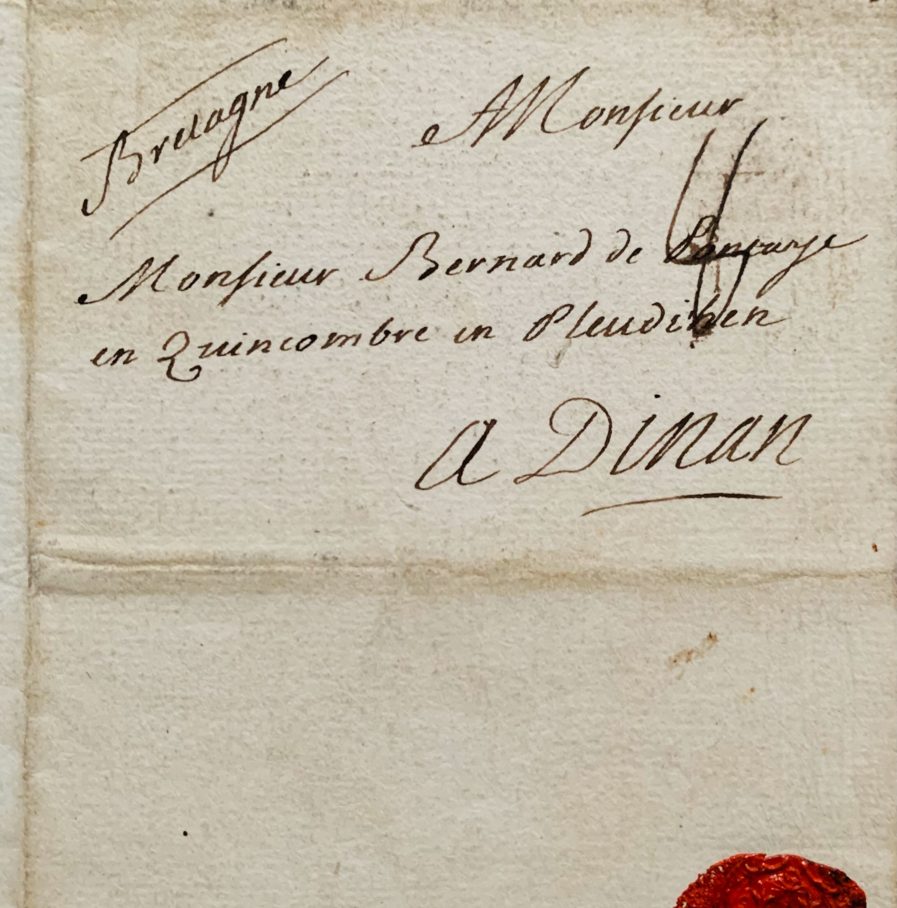 Bretagne
A Monsieur
Monsieur Bernard de
en Quincombre en Pleudihen
a Dinan